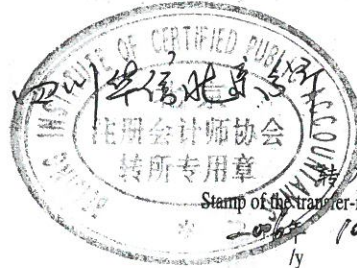 INSTITUTE OF CERTIFIED PUBLIC ACCOUNTANTS
四川华信北京分所
注册会计师协会
转所专用章
转
Stamp of the transfer-
2006年 10
/y